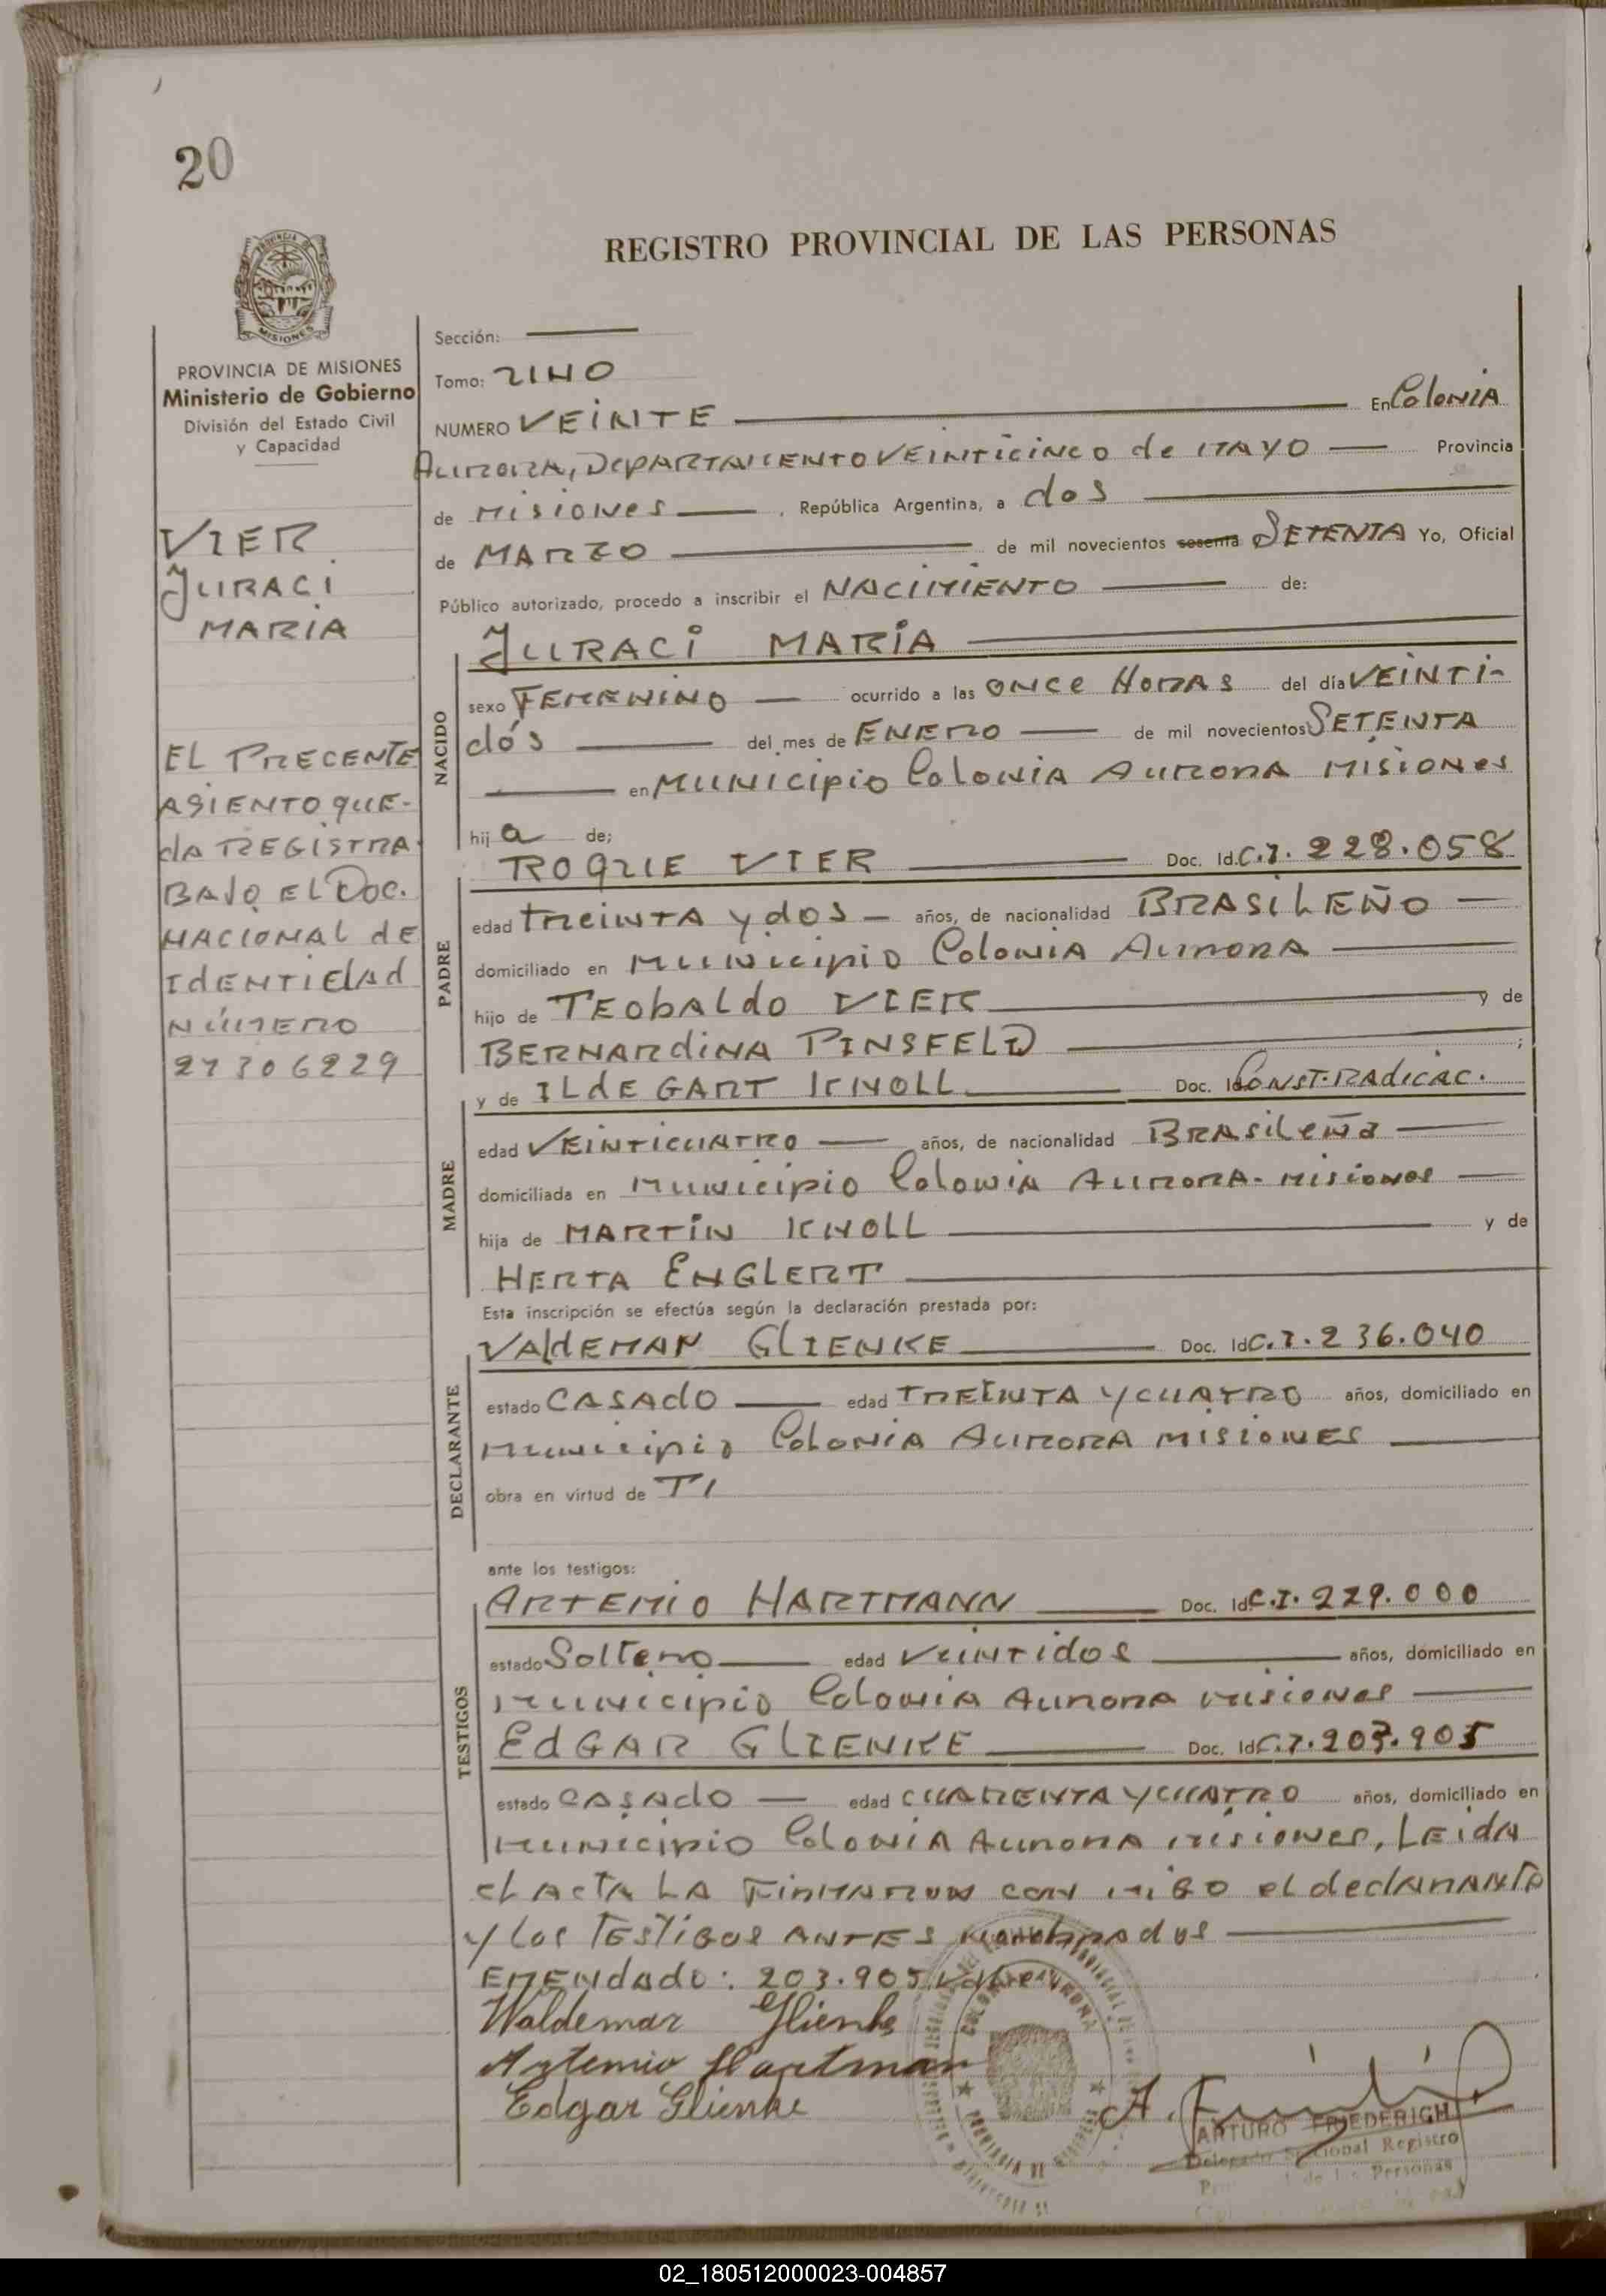 20
REGISTRO PROVINCIAL DE LAS PERSONAS
PROVINCIA DE MISIONES
PROVINCIA DE MISIONES
Ministerio de Gobierno
División del Estado Civil
y Capacidad
VIER
JURACI
MARIA
EL PRECENTE
ASIENTO QUE-
dA REGISTRA
BAJO EL DOC.
NACIONAL dE
IdENTIdAd
NÚMERO
Sección:
Tomo: UNO
NUMERO VEINTE En Colonia
AURORA, DEPARTAMENTO VEINTICINCO de MAYO Provincia
de Misiones , República Argentina, a dos
de MARZO de mil novecientos sesenta SETENTA Yo, Oficial
Público autorizado, procedo a inscribir el NACIMIENTO de:
JURACI MARÍA
NACIDO
sexo FEMENINO ocurrido a las ONCE HORAS del día VEINTI-
dós del mes de ENERO de mil novecientos SETENTA
en MUNICIPIO Colonia AURORA MISIONES
hij a de;
ROQUE VIER Doc. Id. C.I. 228.058
PADRE
edad treinta y dos años, de nacionalidad BRASILEÑO
domiciliado en Municipio Colonia AURORA
hijo de TEobALdo VIER y de
BERNARdiNA PINSFELD ;
y de ILdE GART KNOLL Doc. Id CONST. RAdicac.
MADRE
edad VEINTICUATRO años, de nacionalidad BRASILEÑA
domiciliada en Municipio Colonia AURORA - Misiones
hija de MARTÍN KNOLL y de
HERTA ENGLERT
Esta inscripción se efectúa según la declaración prestada por:
VALdEMAR GLIENKE Doc. Id C.I. 236.040
DECLARANTE
estado CASAdO edad TREINTA Y CUATRO años, domiciliado en
Municipio Colonia AURORA MISIONES
obra en virtud de
ante los testigos:
ARTEMIO HARTMANN Doc. Id C.I. 229.000
TESTIGOS
estado Soltero edad Veintidos años, domiciliado en
Municipio Colonia AURORA Misiones
EdGAR GLIENKE Doc. Id C.I. 203.905
estado CASAdO edad CUARENTA Y CUATRO años, domiciliado en
Municipio Colonia AURORA Misiones, LEidA
el ActA LA FiRMARON con migo el declarante
y los TESTIGOS ANTES nombrados
EMENdado: 203.905 Vale
Waldemar Glienke
Artemio Hartman
Edgar Glienke
ARTURO FRIEDERICH
Delegado Seccional Registro
02_180512000023-004857